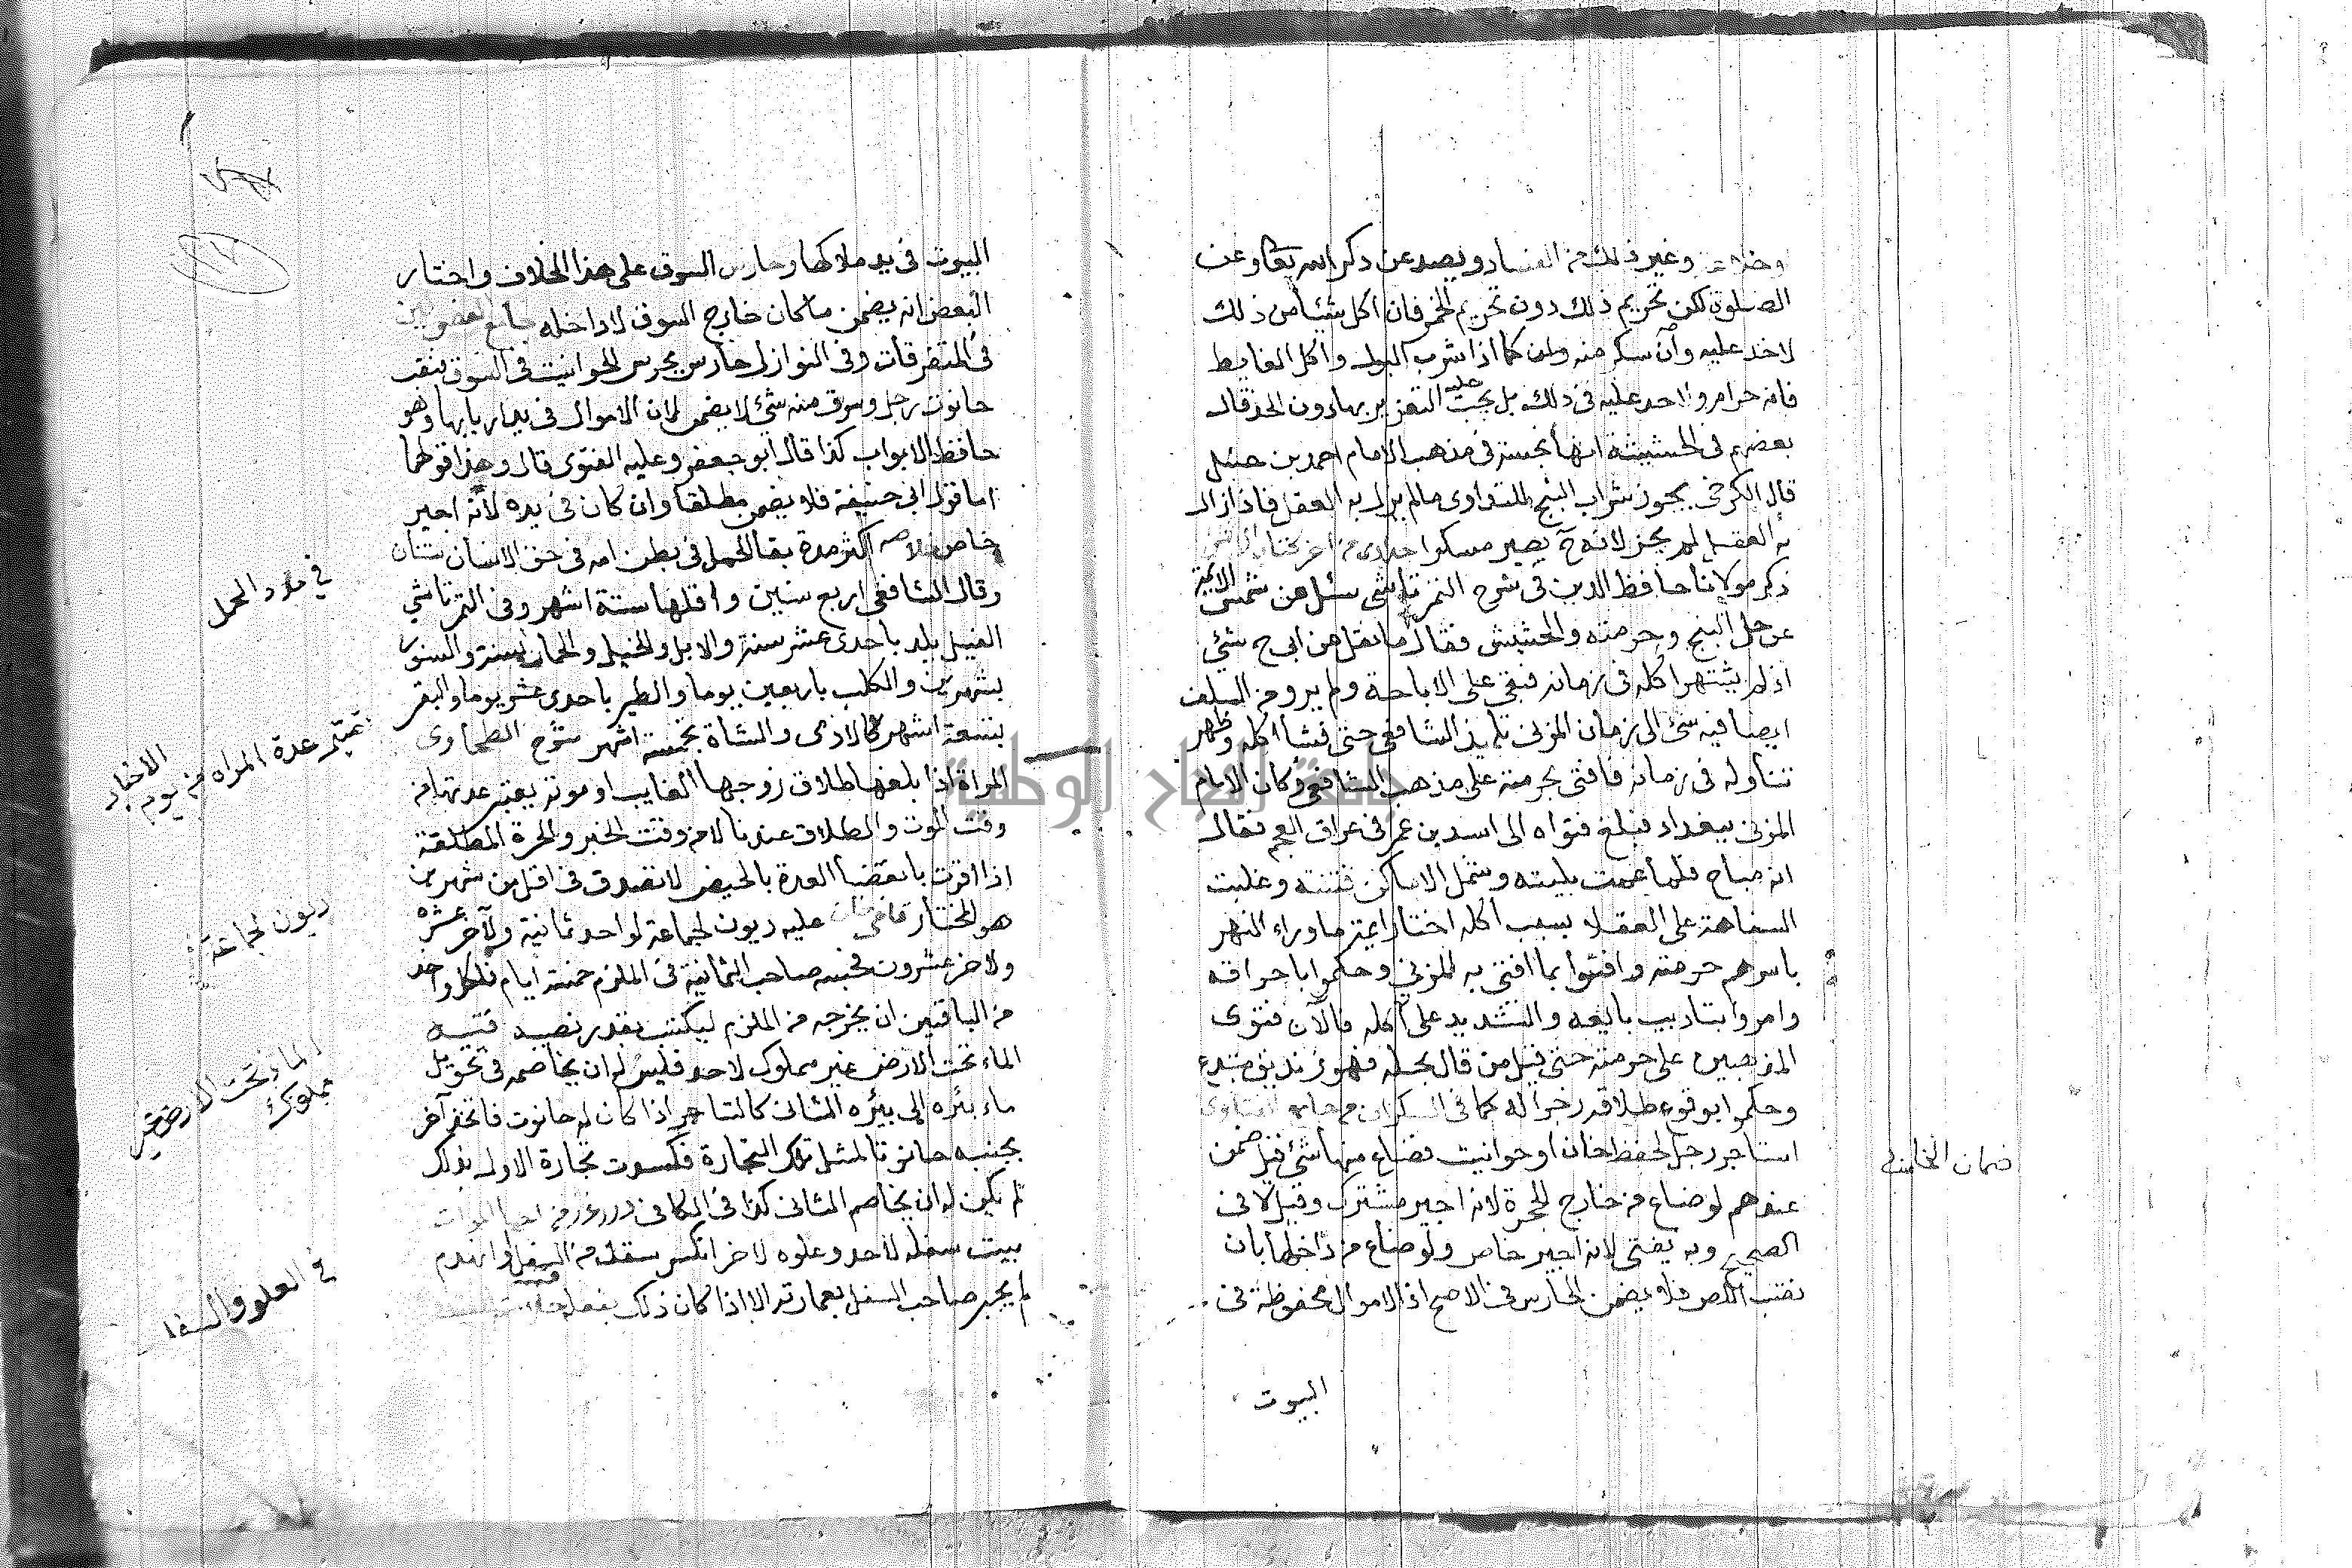 وغير ذلك من الفساد ويصد عن ذكر الله تعالى وعن
الصلوة لكن تحريم ذلك دون تحريم الخمر فان اكل شيئا من ذلك
لا حد عليه وان سكر منه كما اذا شرب البول واكل الغايط
فانه حرام ولا حد عليه في ذلك بل يجب عليه التعزير بها دون الحد قال
بعضهم في الحشيشة انها نجسة في مذهب الامام احمد بن حنبل
قال الكرخي يجوز شراب البنج للتداوى مالم يزل به العقل فاذا زال
به العقل لم يجز لانه ح يصير مسكرا
ذكر مولانا حافظ الدين في شرح التمرتاشى سئل عن شمس الائمة
عن حل البنج وحرمته والحشيش فقال ما نقل عن ابى ح شئ
اذ لم يشتهر اكله في زمانه فبقى على الاباحة ولم يرو من السلف
ايضا فيه شئ الى زمان المزنى تلميذ الشافعى حتى فشا اكله وظهر
تناوله في زمانه فافتى بحرمته على مذهب الشافعى وكان الامام
المزنى ببغداد فبلغ فتواه الى اسد بن عمر في عراق العجم فقال
انه مباح فلما عمت بليته وشمل الاماكن فتنته وغلبت
السفاهة على العقلا بسبب اكله اختار ايمة ما وراء النهر
باسرهم حرمته وافتوا بما افتى به المزني وحكموا باحراقه
وامروا بتاديب بايعه والتشديد على اكله فالآن فتوى
المذهبين على حرمته حتى قيل من قال بحله فهو زنديق مبتدع
وحكموا بوقوع طلاقه زجرا له كما في السكران من جامع الفتاوى
استاجر رجل لحفظ خان او حوانيت فضاع منها شئ قيل ضمن
عندهم لو ضاع من خارج الحجرة لانه اجير مشترك وقيل لا في
الصحيح وبه يفتى لانه اجير خاص ولو ضاع من داخلها بان
نقب اللص فلا يضمن الحارس في الاصح اذ الاموال محفوظة في
البيوت
ضمان الحارس
البيوت في يد ملاكها وحارس السوق على هذا الخلاف واختار
البعض انه يضمن ما كان خارج السوق لا داخله جامع الفصولين
في المتفرقات وفى النوازل حارس يحرس الحوانيت في السوق فنقب
حانوت رجل وسرق منه شئ لا يضمن لان الاموال في يد اربابها وهو
حافظ الابواب كذا قال ابو جعفر وعليه الفتوى قال وهذا قولهما
اما قول ابى حنيفة فلا يضمن مطلقا وان كان في يده لانه اجير
خاص اكثر مدة بقا الحمل في بطن امه في حق الانسان سنتان
وقال الشافعى اربع سنين واقلها ستة اشهر وفى التمرتاشي
الفيل يلد باحدى عشر سنة والابل والخيل والحمار بسنة والسنور
بشهرين والكلب باربعين يوما والطير باحدى عشر يوما والبقر
بتسعة اشهر كالادمى والشاة بخمسة اشهر شرح الطحاوى
المراة اذا بلغها طلاق زوجها الغايب او موته يعتبر عدتها من
وقت الموت والطلاق عندنا لا من وقت الخبر والحرة المطلقة
اذا اقرت بانقضا العدة بالحيض لا تصدق في اقل من شهرين
هو المختار قاضى خان عليه ديون لجماعة لواحد ثمانية ولآخر عشرة
ولاخر عشرون فحبسه صاحب الثمانية في الملزم خمسة ايام فلكل واحد
من الباقيين ان يخرجه من الملزم ليكتسب بقدر نصيبه قنيه
الماء تحت الارض غير مملوك لاحد فليس له ان يخاصمه في تحويل
ماء بئره الى بئره الثانى كالتاجر اذا كان له حانوت فاتخذ آخر
بجنبه حانوتا لمثل تلك التجارة فكسدت تجارة الاول بذلك
لم يكن له ان يخاصم الثانى كذا في الكافى درر غرر من احيا الموات
بيت سفله لاحد وعلوه لاخر انكسر سقف من السفل او انهدم
لم يجبر صاحب السفل بعمارته الا اذا كان ذلك بفعله
في مدة الحمل
تعتبر عدة المراه من يوم الاخبار
ديون لجماعة
الماء تحت الارض غير مملوك
في العلو والسفل
جامعة النجاح الوطنية